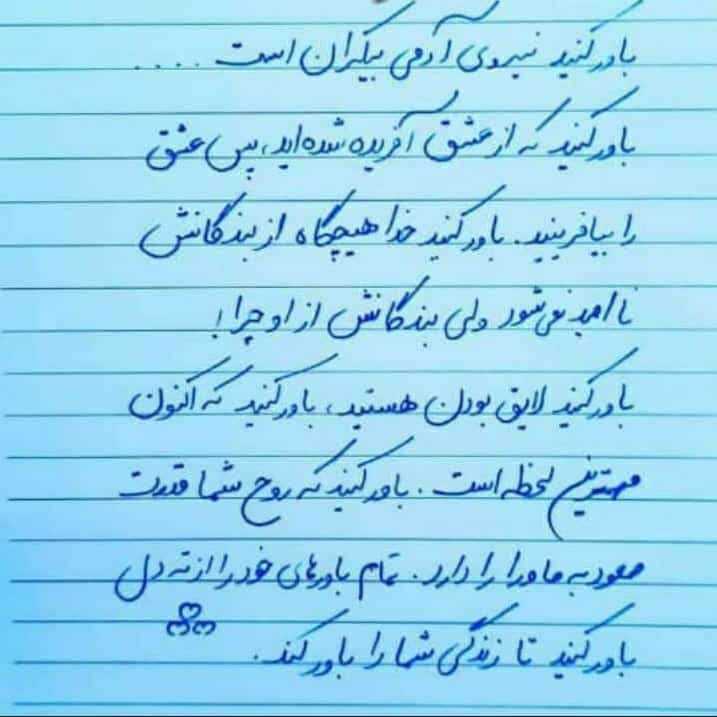 باور کنید نیروی آدمی بیکران است ....
باور کنید که از عشق آفریده شده اید، پس عشق
را بیافرینید. باور کنید خدا هیچگاه از بندگانش
نا امید نمی شود ولی بندگانش از او چرا!
باور کنید لایق بودن هستید، باور کنید که اکنون
مهمترین لحظه است. باور کنید که روح شما قدرت
صعود به ماورا را دارد. تمام باورهای خود را از ته دل
باور کنید تا زندگی شما را باور کند.